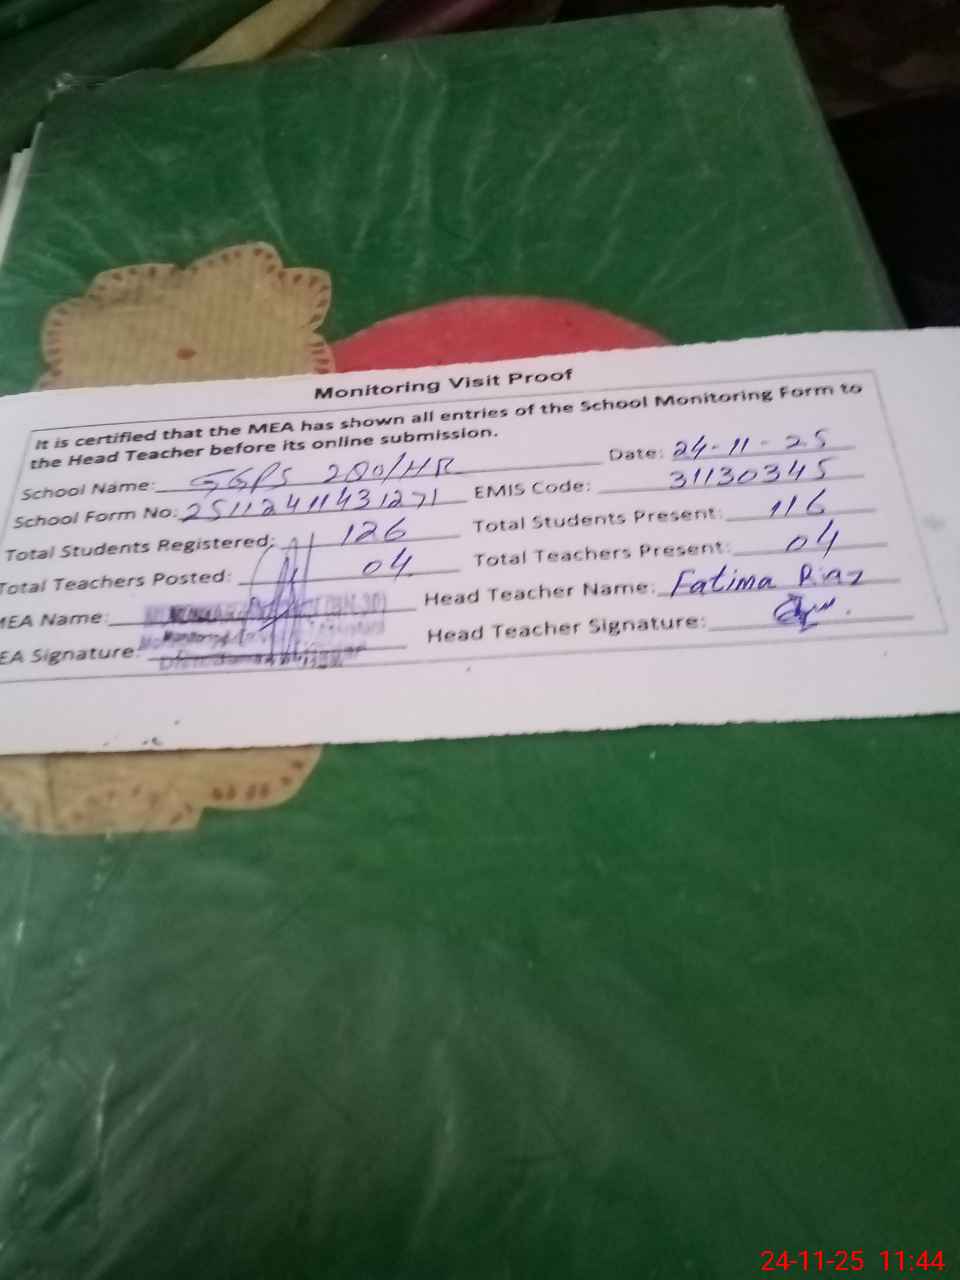 Monitoring Visit Proof
It is certified that the MEA has shown all entries of the School Monitoring Form to
the Head Teacher before its online submission.
School Name: GGPS 200/HR Date: 24-11-25
School Form No: 251124111431271 EMIS Code: 31130345
Total Students Registered: 126 Total Students Present: 116
Total Teachers Posted: 04 Total Teachers Present: 04
MEA Name: Head Teacher Name: Fatima Riaz
EA Signature: Head Teacher Signature:
24-11-25 11:44